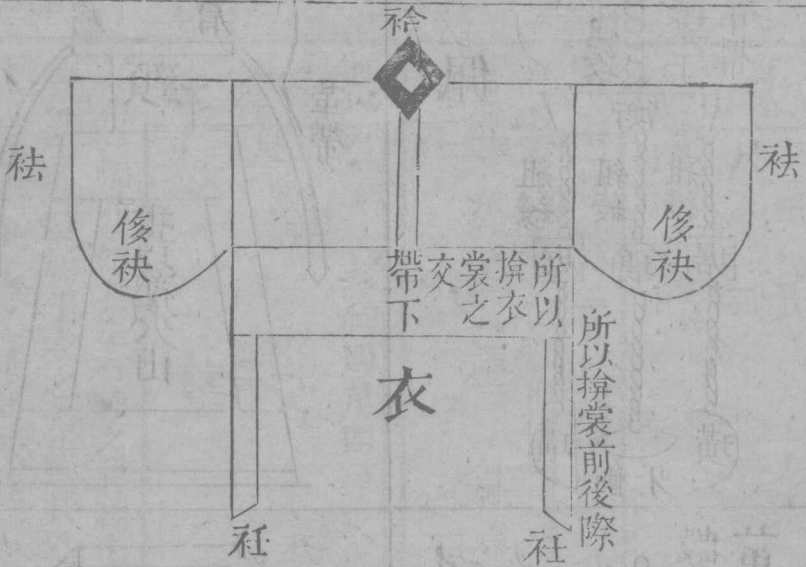 袷
袪
袪
侈袂
侈袂
所以
揜衣
裳之
交
帶下
所以揜裳前後際
衣
衽
衽